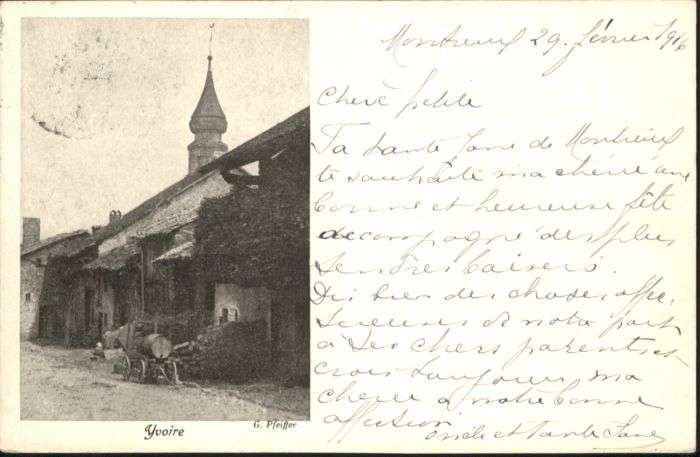 Montreux 29. février 1916
Chère petite
Ta tante Jane de Montreux
te souhaite ma chérie une
bonne et heureuse fête
accompagné des plus
tendres baisers.
Dis bien des choses affec
tueuses de notre part
à tes chers parents et
crois toujours ma
chérie à notre bonne
affection
oncle et tante Jane
Yvoire
G. Pfeiffer